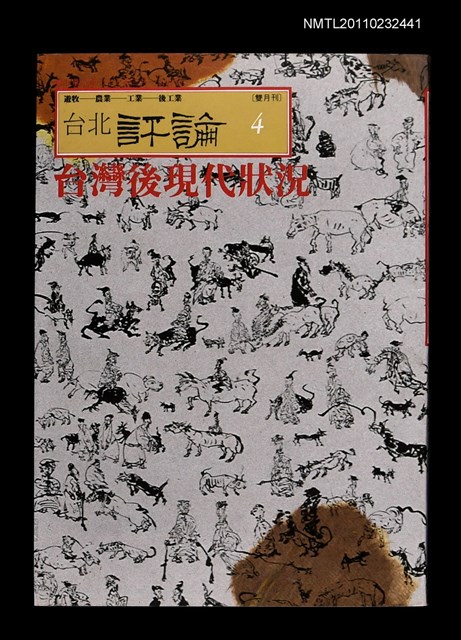 NMTL20110232441
遊牧——農業——工業——後工業
〔雙月刊〕
台北評論 4
台灣後現代狀況